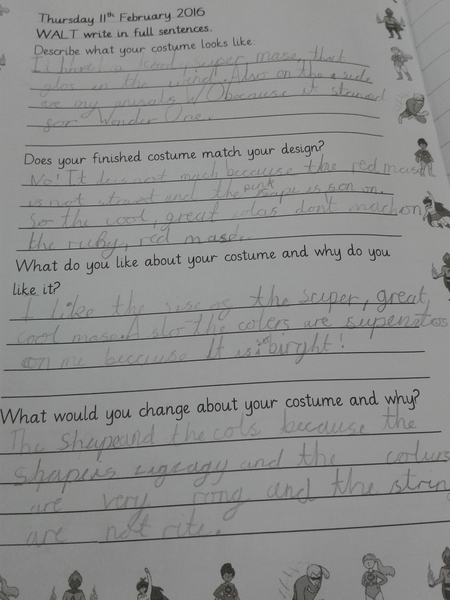 Thursday 11th February 2016
WALT write in full sentences.
Describe what your costume looks like.
I have a super mase, that
in the wind. Also on the side
are my W/O because it stand
for Wonder One.
Does your finished costume match your design?
No! It does not much because the red mase
is not and the pink is son on.
So the cool, great colas dont mach on
the ruby, red mase.
What do you like about your costume and why do you
like it?
I like the use of the super, great,
cool mase. Also the colers are
on me because It is birght!
What would you change about your costume and why?
The Shape and the cols because the
shape is zigzagy and the colurs
are very rong and the string
are not rite.